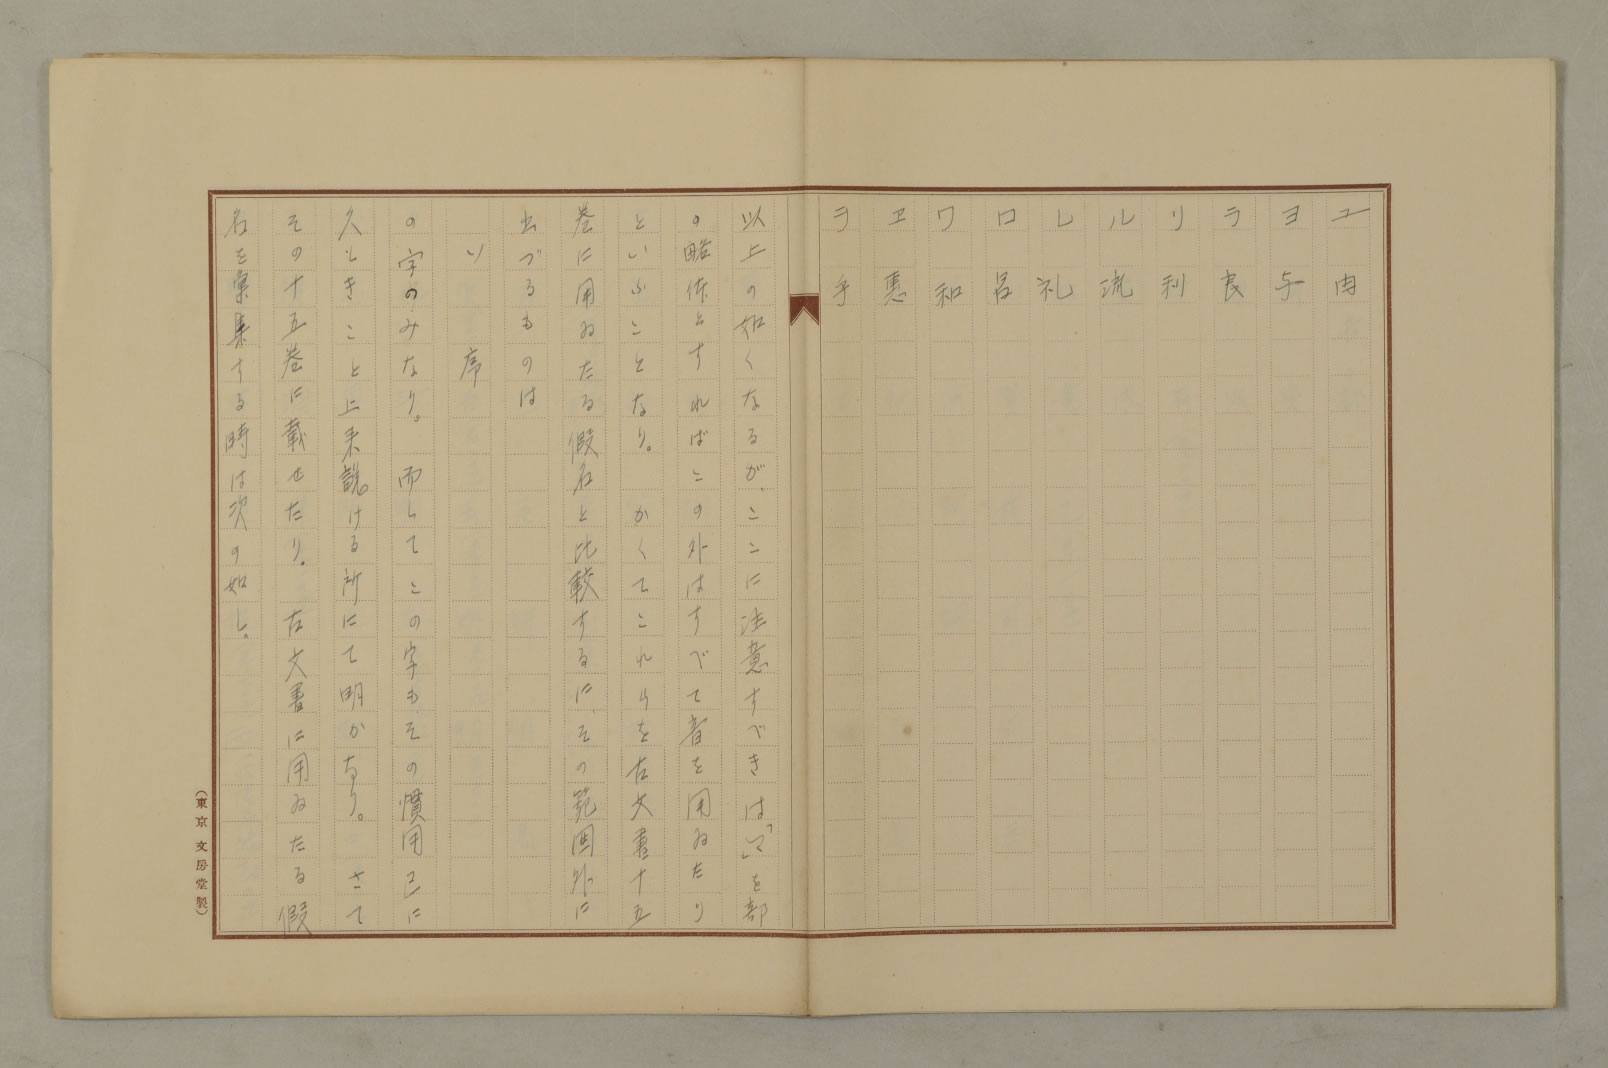 ユ 由
ヨ 与
ラ 良
リ 利
ル 流
レ 礼
ロ 呂
ワ 和
ヱ 恵
ヲ 乎
以上の如くなるが、ここに注意すべきは「マ」を部
の略体とすればこの外はすべて音を用ゐたり
といふことなり。かくてこれらを古文書十五
巻に用ゐたる假名と比較するに、その範囲外に
出づるものは
ソ 序
の字のみなり。而してこの字も、その慣用已に
久しきこと上来説ける所にて明かなり。さて
その十五巻に載せたり。古文書に用ゐたる假
名を彙集する時は次の如し。
(東京 文房堂製)